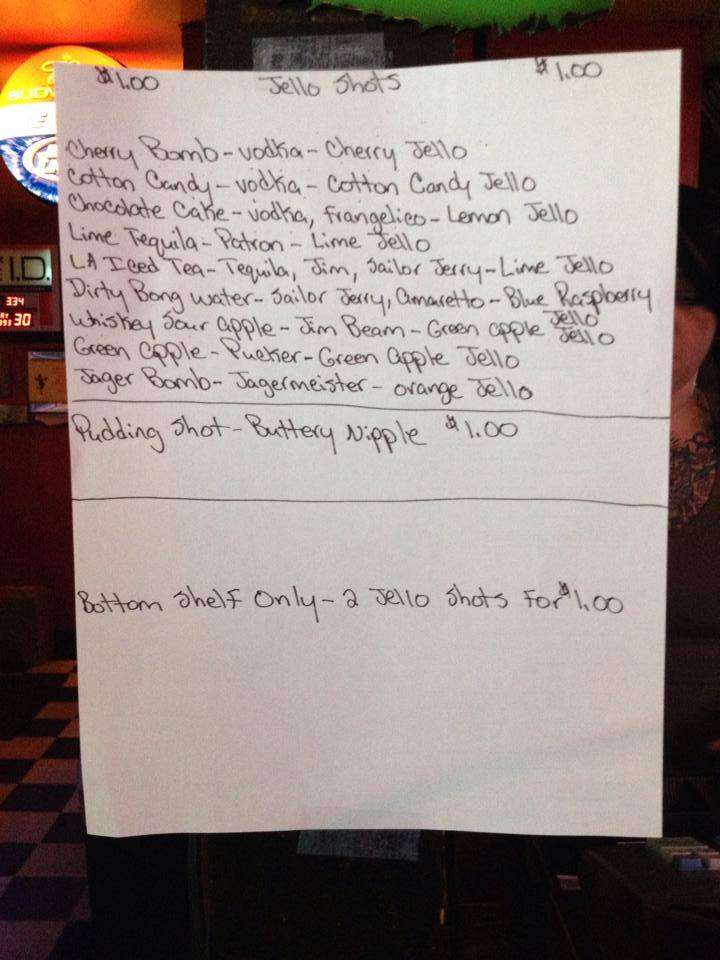 $1.00 Jello Shots $1.00
Cherry Bomb - vodka - Cherry Jello
Cotton Candy - vodka - Cotton Candy Jello
Chocolate Cake - vodka, frangelico - Lemon Jello
Lime Tequila - Patron - Lime Jello
LA Iced Tea - Tequila, Jim, Sailor Jerry - Lime Jello
Dirty Bong water - Sailor Jerry, Amaretto - Blue Raspberry Jello
Whiskey Sour apple - Jim Beam - Green apple Jello
Green apple - Pucker - Green apple Jello
Jager Bomb - Jagermeister - orange Jello
Pudding Shot - Buttery Nipple $1.00
Bottom Shelf Only - 2 Jello Shots For $1.00
I.D.
334
30